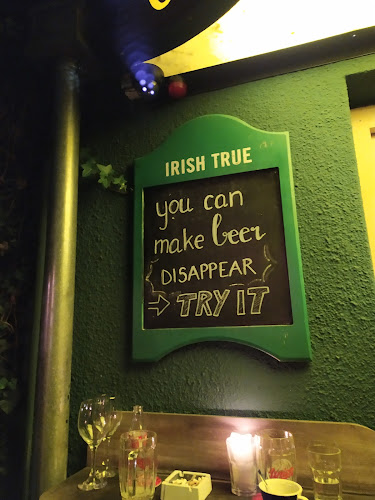 IRISH TRUE
you can
make beer
DISAPPEAR
→ TRY IT